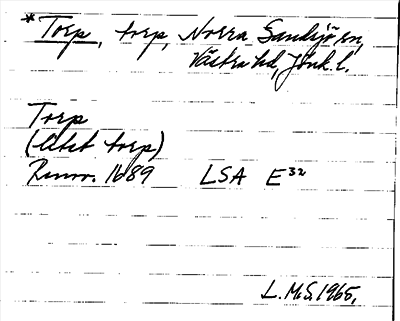 *Torp, torp, Norra Sandsjö sn,
Västra hd, Jönk. l.
Torp
(litet torp)
Rannr. 1689 LSA E³²
L.M.S. 1965.